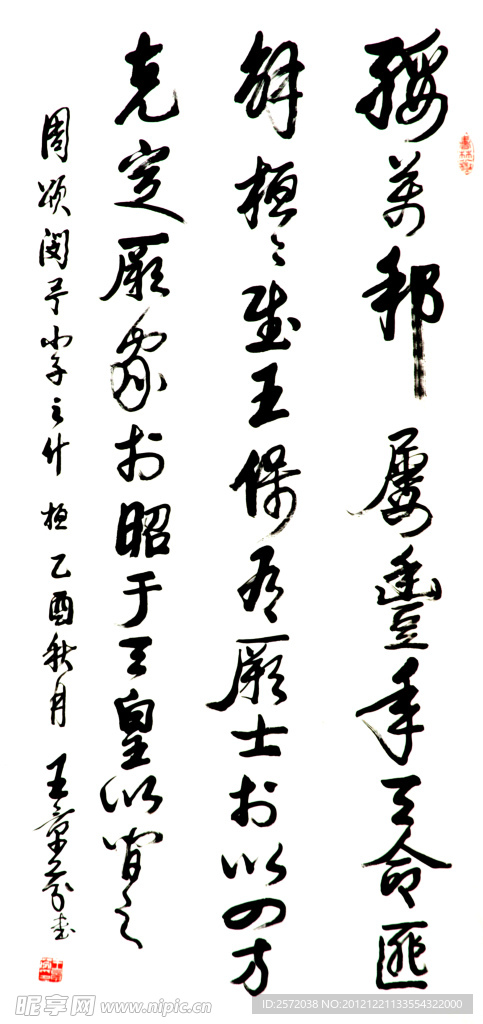 綏萬邦屢豐年天命匪
解桓〻武王保有厥士於以四方
克定厥家於昭于天皇以間之
周頌閔予小子之什 桓 乙酉秋月 王景芬書
昵享网 www.nipic.cn
ID:2572038 NO:20121221133554322000